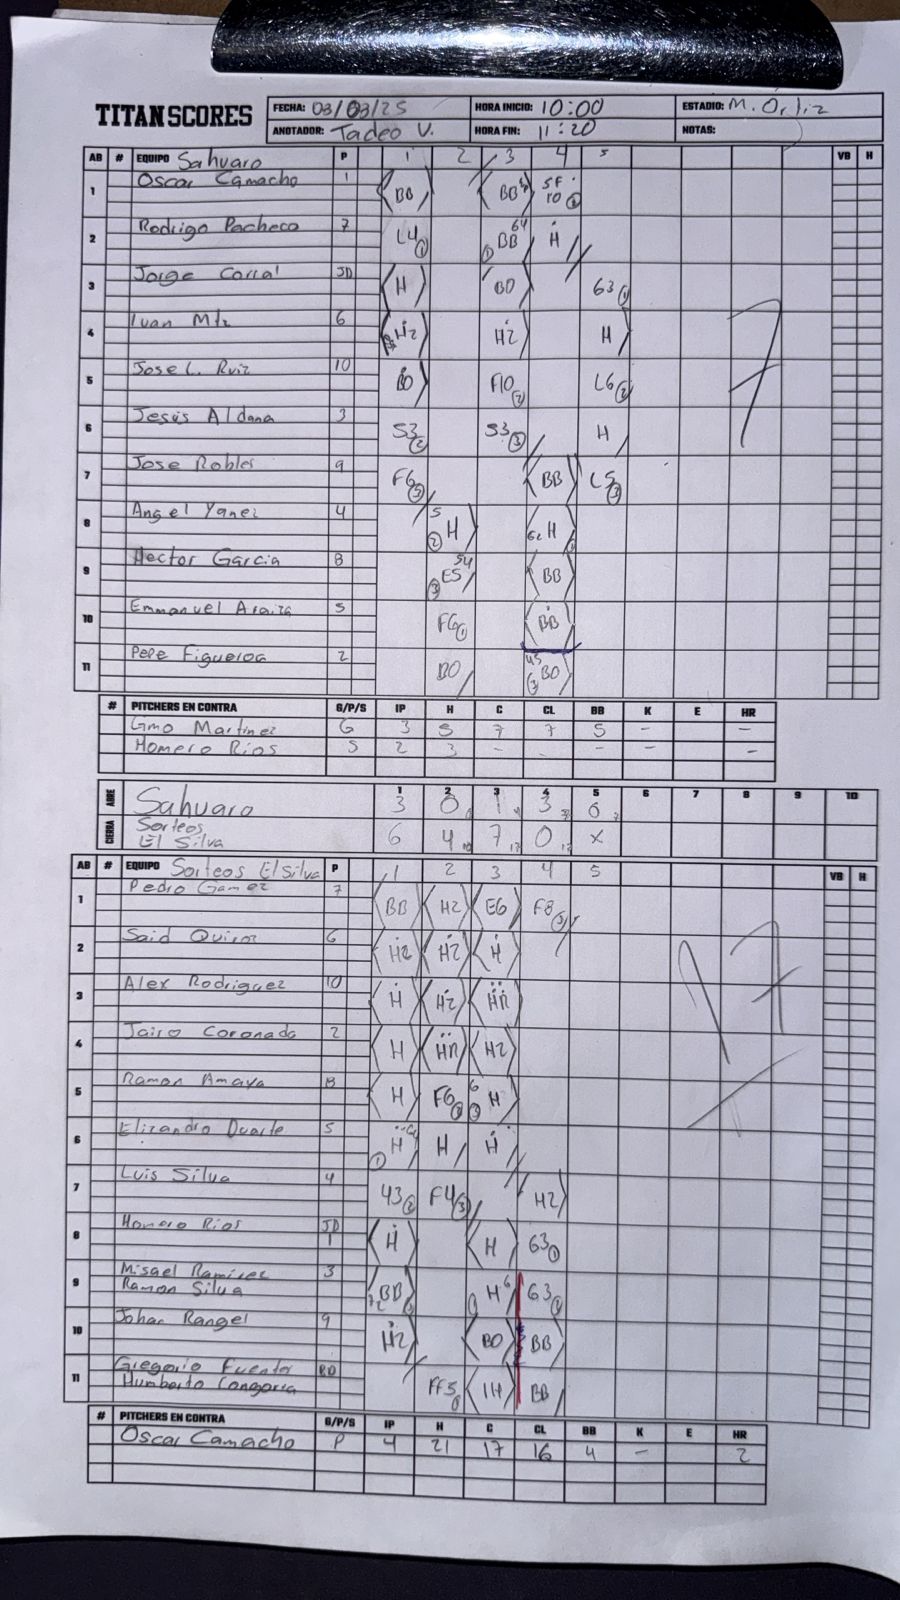 TITAN SCORES
FECHA: 03/03/25 HORA INICIO: 10:00 ESTADIO: M. Ortiz
ANOTADOR: Tadeo V. HORA FIN: 11:20 NOTAS:
AB # EQUIPO Sahuaro P 1 2 3 4 5 VB H
1 Oscar Camacho 1 BB BB SF 10
2 Rodrigo Pacheco 7 L4 1 BB 64 1 H
3 Jorge Corral JD H BO 63 1
4 Ivan Mtz 6 H2 H2 H
5 Jose L. Ruiz 10 BO F10 2 L6 2
6 Jesus Aldana 3 53 2 53 3 H
7 Jose Robles 9 F6 3 BB L5 3
8 Angel Yanez 4 5 2 H H
9 Hector Garcia B E5 54 3 BB
10 Emmanuel Araiza 5 F6 1 BB
11 Pepe Figueroa 2 BO 45 BO
7
# PITCHERS EN CONTRA G/P/S IP H C CL BB K E HR
Gmo Martinez G 3 5 7 7 5 - -
Homero Rios S 2 3 - - - - -
1 2 3 4 5 6 7 8 9 10
ABRE Sahuaro 3 0 1 3 0
CIERRA Sorteos El Silva 6 4 7 0 x
AB # EQUIPO Sorteos El Silva P 1 2 3 4 5 VB H
1 Pedro Gamez 7 BB H2 E6 F8 3
2 Said Quiroz 6 H2 H2 H
3 Alex Rodriguez 10 H H2 HR
4 Jairo Coronado 2 H HR H2
5 Ramon Amaya B H F6 2 6 3 H
6 Elizandro Duarte 5 1 H H H
7 Luis Silva 4 43 2 F4 3 H2
8 Homero Rios JD 1 H H 63 1
9 Misael Ramirez 3 BB H 6 63 2
Ramon Silva
10 Johan Rangel 9 H2 BO BB
11 Gregorio Fuentes BD FF5 1H BB
Humberto Longoria
17
# PITCHERS EN CONTRA G/P/S IP H C CL BB K E HR
Oscar Camacho P 4 21 17 16 4 - 2